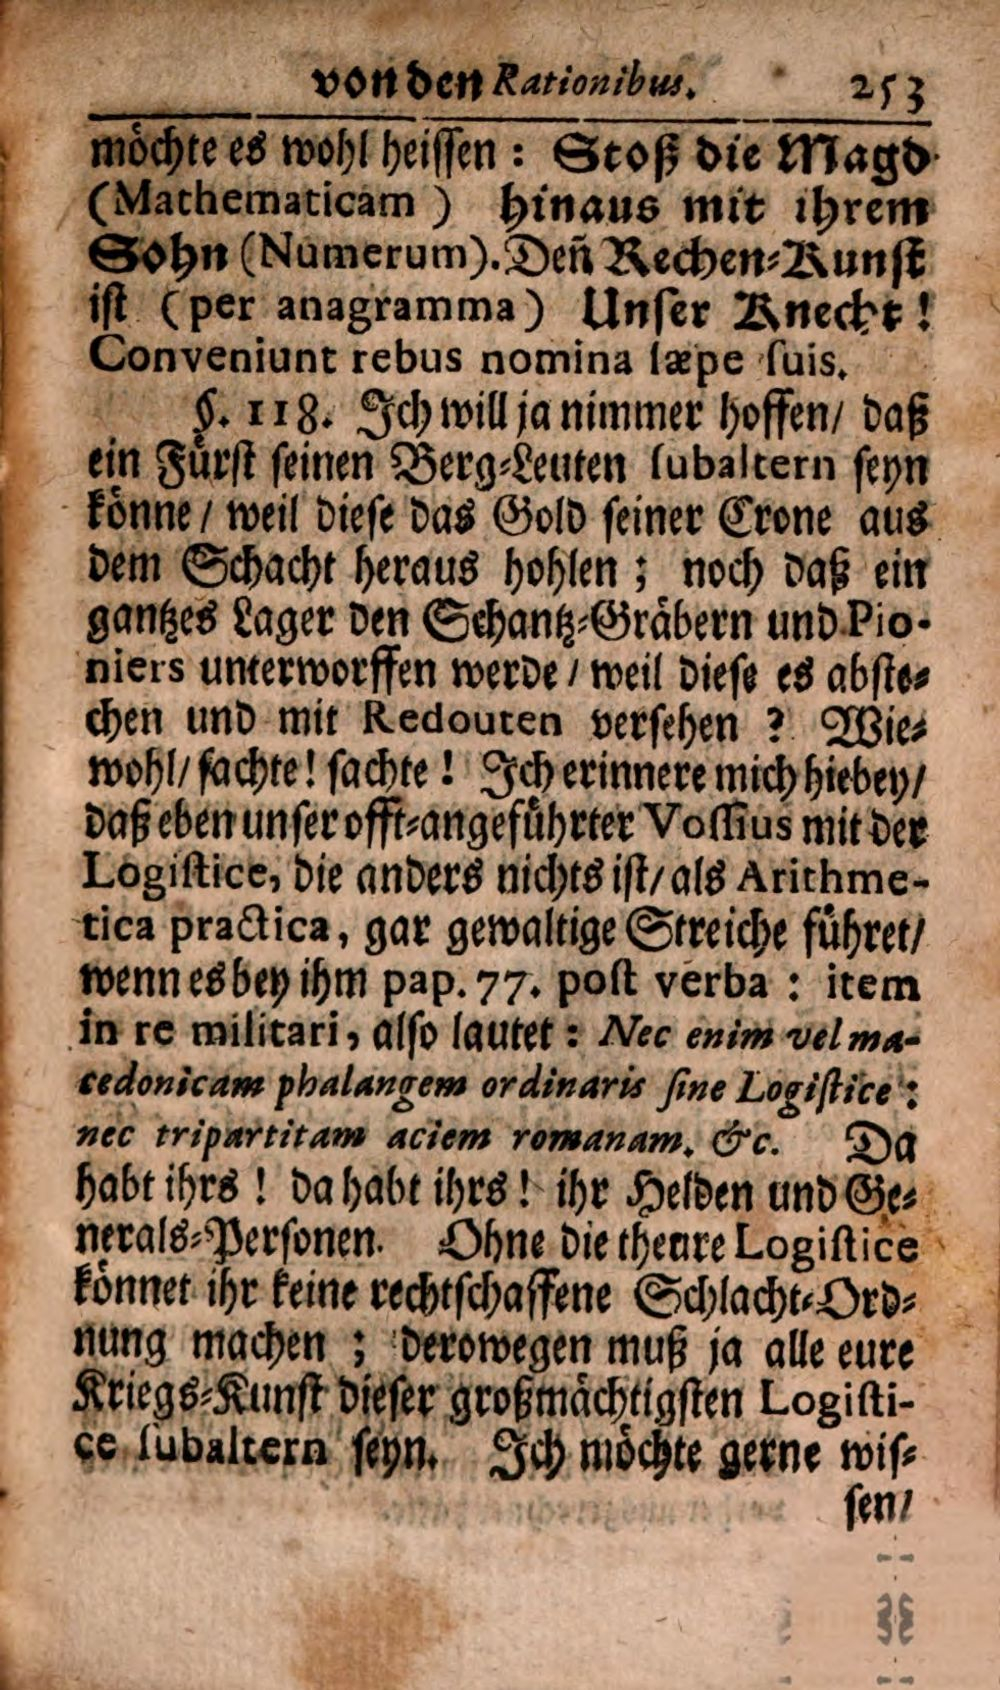 von den Rationibus. 253
möchte es wohl heissen : Stoß die Magd
(Mathematicam ) hinaus mit ihrem
Sohn (Numerum). Deñ Rechen⸗Kunst
ist (per anagramma) Unser Knecht !
Conveniunt rebus nomina sæpe suis.
§. 118. Ich will ja nimmer hoffen/ daß
ein Fürst seinen Berg⸗Leuten subaltern seyn
könne / weil diese das Gold seiner Crone aus
dem Schacht heraus hohlen ; noch daß ein
gantzes Lager den Schantz⸗Gräbern und Pio-
niers unterworffen werde / weil diese es abste⸗
chen und mit Redouten versehen ? Wie⸗
wohl/ sachte! sachte ! Ich erinnere mich hiebey/
daß eben unser offt⸗angeführter Vossius mit der
Logistice, die anders nichts ist/ als Arithme-
tica practica, gar gewaltige Streiche führet/
wenn es bey ihm pap. 77. post verba : item
in re militari, also lautet : Nec enim vel ma-
cedonicam phalangem ordinaris sine Logistice :
nec tripartitam aciem romanam. &c. Da
habt ihrs ! da habt ihrs ! ihr Helden und Ge⸗
nerals⸗Personen. Ohne die theure Logistice
könnet ihr keine rechtschaffene Schlacht⸗Ord⸗
nung machen ; derowegen muß ja alle eure
Kriegs⸗Kunst dieser großmächtigsten Logisti-
ce subaltern seyn. Ich möchte gerne wis⸗
sen/